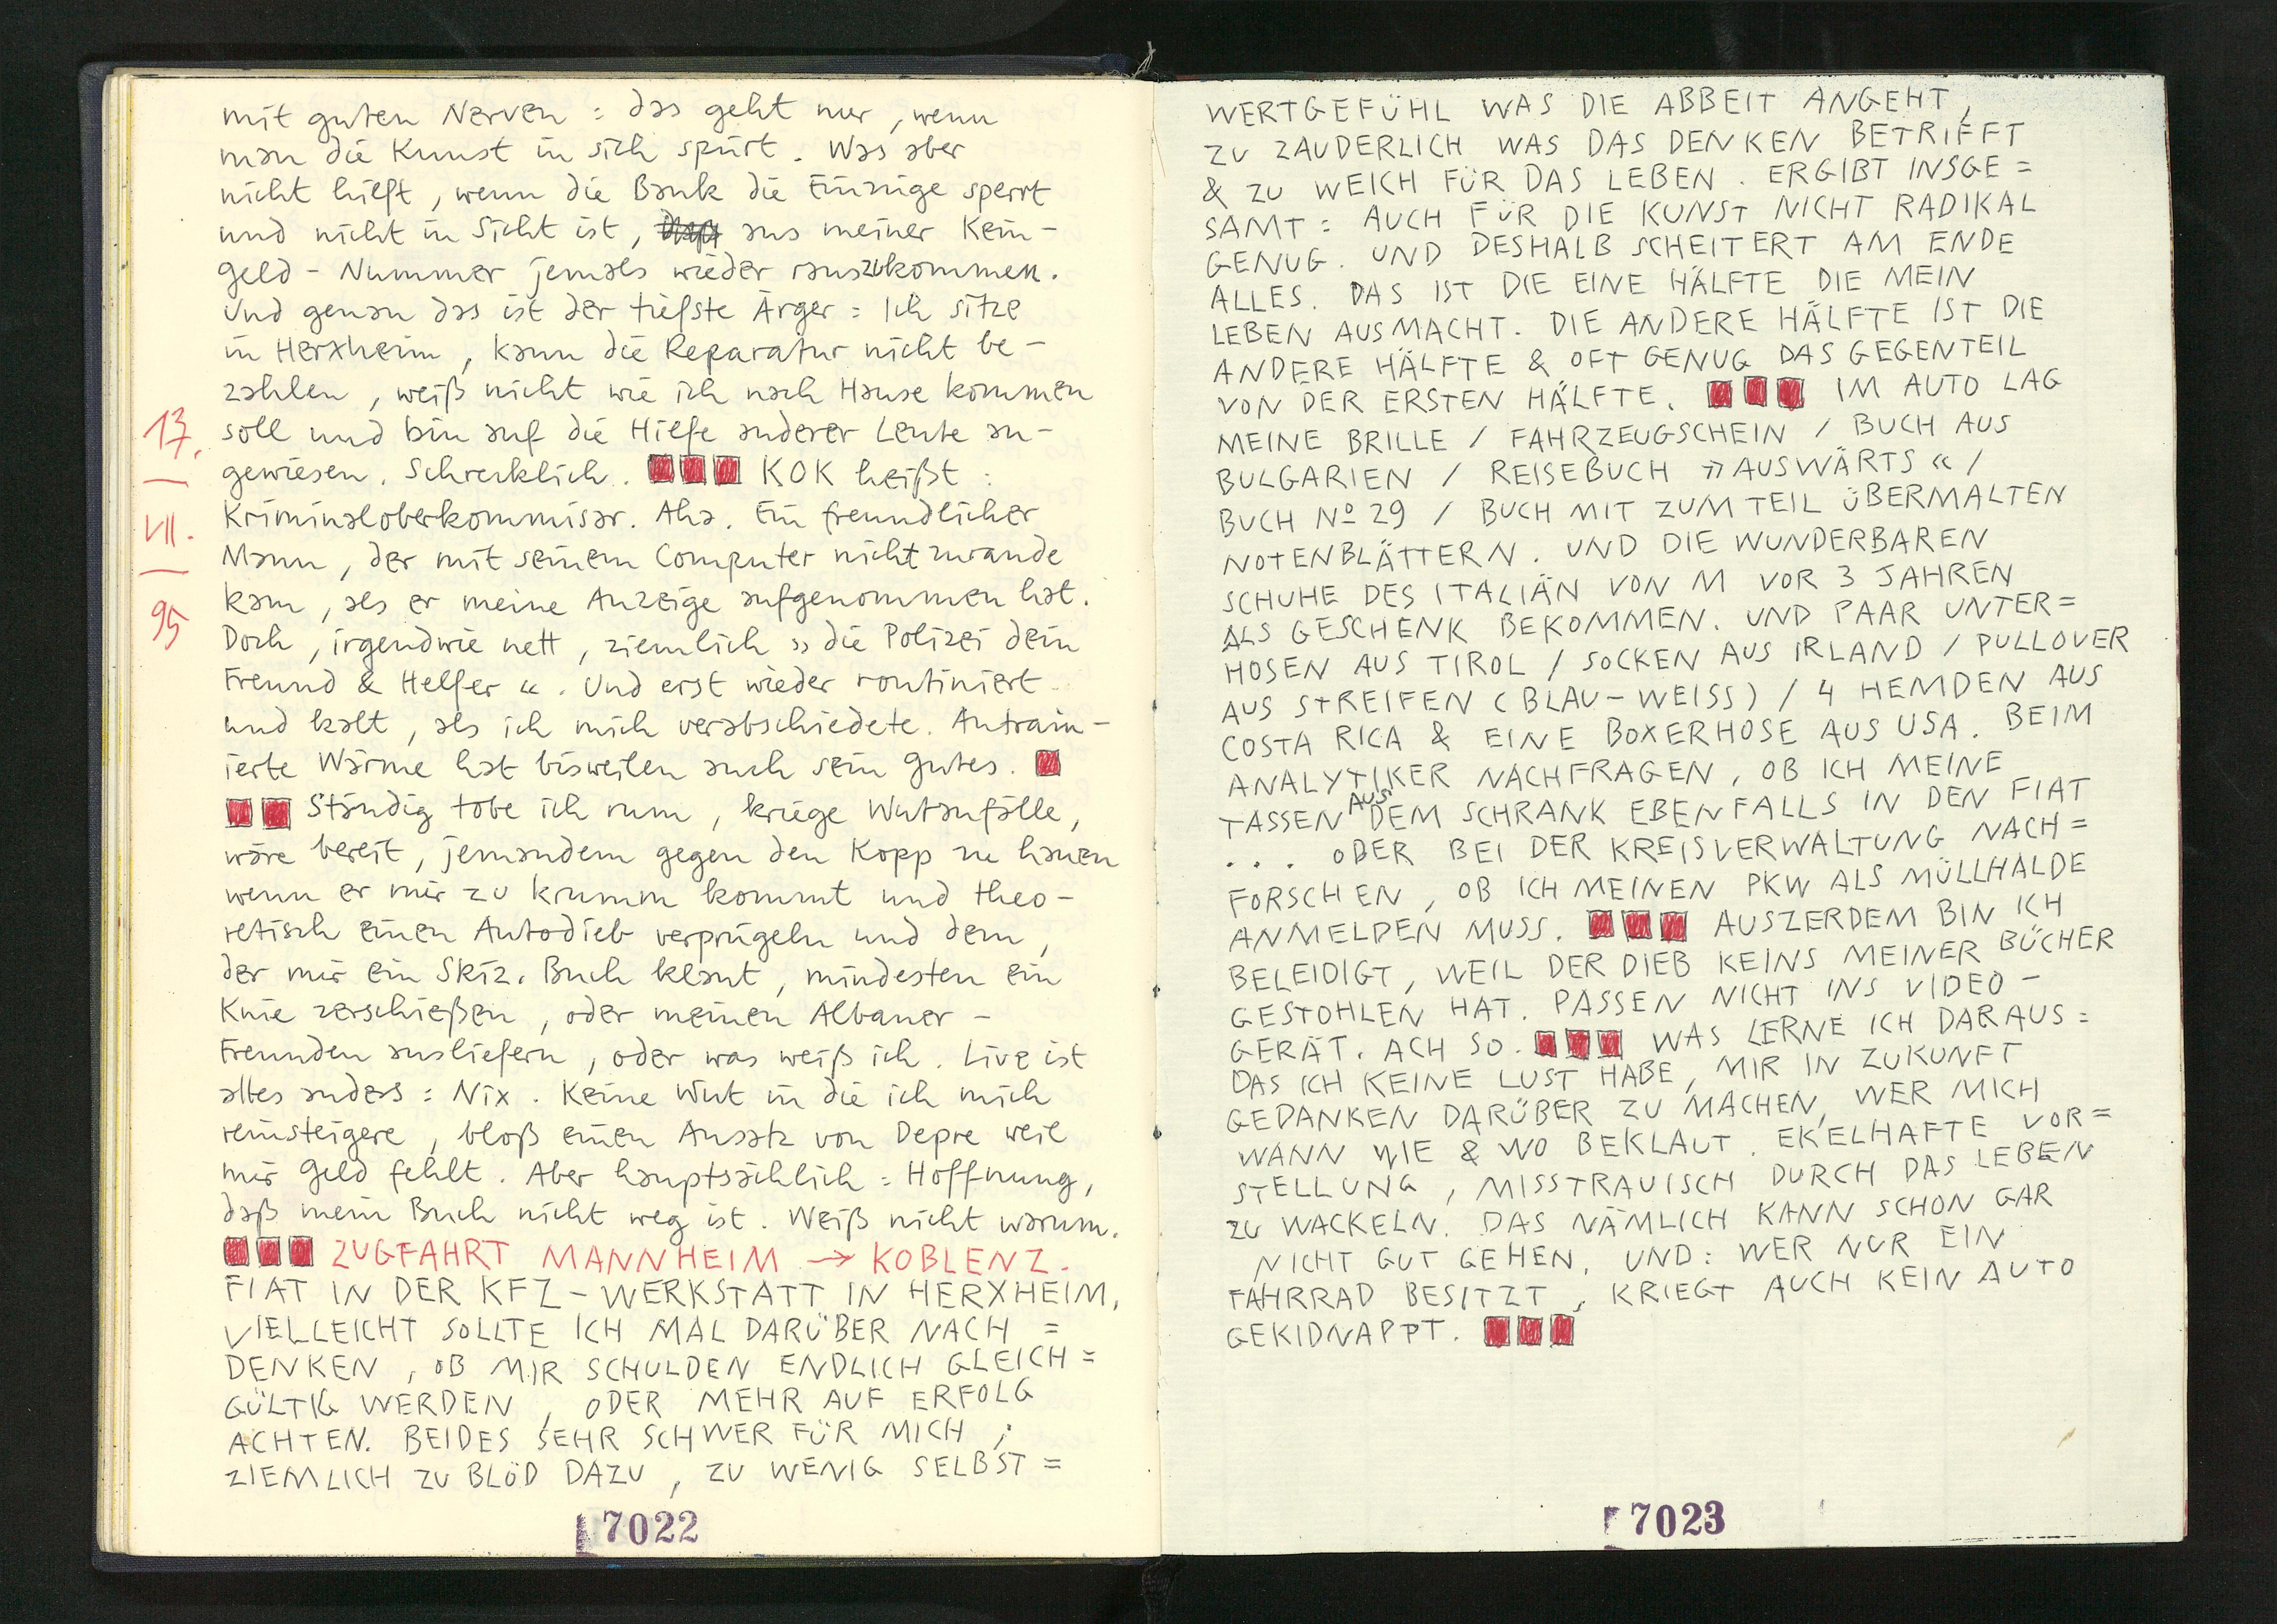 mit guten Nerven : das geht nur, wenn
man die Kunst in sich spürt. Was aber
nicht hilft, wenn die Bank die Einzige sperrt
und nicht in Sicht ist, aus meiner Kein-
geld-Nummer jemals wieder rauszukommen.
Und genau das ist der tiefste Ärger : Ich sitze
in Herxheim, kann die Reparatur nicht be-
zahlen, weiß nicht wie ich nach Hause kommen
soll und bin auf die Hilfe anderer Leute an-
gewiesen. Schrecklich. KOK heißt :
Kriminaloberkommisar. Aha. Ein freundlicher
Mann, der mit seinem Computer nicht zurande
kam, als er meine Anzeige aufgenommen hat.
Doch, irgendwie nett, ziemlich »die Polizei dein
Freund & Helfer«. Und erst wieder routiniert
und kalt, als ich mich verabschiedete. Antrain-
ierte Wärme hat bisweilen auch sein Gutes.
Ständig tobe ich rum, kriege Wutanfälle,
wäre bereit, jemandem gegen den Kopp zu hauen
wenn er mir zu krumm kommt und theo-
retisch einen Autodieb verprügeln und dem,
der mir ein Skiz. Buch klaut, mindesten ein
Knie zerschießen, oder meinen Albaner-
Freunden ausliefern, oder was weiß ich. Live ist
alles anders : Nix. Keine Wut in die ich mich
reinsteigere, bloß einen Ansatz von Depre weil
mir Geld fehlt. Aber hauptsächlich : Hoffnung,
daß mein Buch nicht weg ist. Weiß nicht warum.
ZUGFAHRT MANNHEIM → KOBLENZ.
FIAT IN DER KFZ-WERKSTATT IN HERXHEIM,
VIELLEICHT SOLLTE ICH MAL DARÜBER NACH =
DENKEN, OB MIR SCHULDEN ENDLICH GLEICH =
GÜLTIG WERDEN, ODER MEHR AUF ERFOLG
ACHTEN. BEIDES SEHR SCHWER FÜR MICH ;
ZIEMLICH ZU BLÖD DAZU, ZU WENIG SELBST =
13.
VII.
95
7022
WERTGEFÜHL WAS DIE ABBEIT ANGEHT,
ZU ZAUDERLICH WAS DAS DENKEN BETRIFFT
& ZU WEICH FÜR DAS LEBEN. ERGIBT INSGE =
SAMT : AUCH FÜR DIE KUNST NICHT RADIKAL
GENUG. UND DESHALB SCHEITERT AM ENDE
ALLES. DAS IST DIE EINE HÄLFTE DIE MEIN
LEBEN AUSMACHT. DIE ANDERE HÄLFTE IST DIE
ANDERE HÄLFTE & OFT GENUG DAS GEGENTEIL
VON DER ERSTEN HÄLFTE. IM AUTO LAG
MEINE BRILLE / FAHRZEUGSCHEIN / BUCH AUS
BULGARIEN / REISEBUCH »AUSWÄRTS« /
BUCH Nº 29 / BUCH MIT ZUM TEIL ÜBERMALTEN
NOTENBLÄTTERN. UND DIE WUNDERBAREN
SCHUHE DES ITALIÄN VON M VOR 3 JAHREN
ALS GESCHENK BEKOMMEN. UND PAAR UNTER =
HOSEN AUS TIROL / SOCKEN AUS IRLAND / PULLOVER
AUS STREIFEN (BLAU-WEISS) / 4 HEMDEN AUS
COSTA RICA & EINE BOXERHOSE AUS USA. BEIM
ANALYTIKER NACHFRAGEN, OB ICH MEINE
TASSEN AUS DEM SCHRANK EBENFALLS IN DEN FIAT
... ODER BEI DER KREISVERWALTUNG NACH =
FORSCHEN, OB ICH MEINEN PKW ALS MÜLLHALDE
ANMELDEN MUSS. AUSZERDEM BIN ICH
BELEIDIGT, WEIL DER DIEB KEINS MEINER BÜCHER
GESTOHLEN HAT. PASSEN NICHT INS VIDEO-
GERÄT. ACH SO. WAS LERNE ICH DARAUS :
DAS ICH KEINE LUST HABE, MIR IN ZUKUNFT
GEDANKEN DARÜBER ZU MACHEN, WER MICH
WANN WIE & WO BEKLAUT. EKELHAFTE VOR =
STELLUNG, MISSTRAUISCH DURCH DAS LEBEN
ZU WACKELN. DAS NÄMLICH KANN SCHON GAR
NICHT GUT GEHEN. UND : WER NUR EIN
FAHRRAD BESITZT, KRIEGT AUCH KEIN AUTO
GEKIDNAPPT.
7023